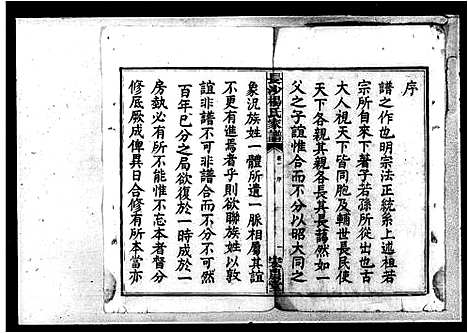 序
譜之作也明宗法正統系上述祖若
宗所自來下著子若孫所從出也古
大人視天下皆同胞及輔世長民使
天下各親其親各長其長藹然如一
父之子誼惟合而不分以昭大同之
長沙楊氏家譜
卷一 序
象況族姓一體所遺一脈相屬其誼
不更有進焉者乎則欲聯族姓以敦
誼非譜不可非譜合而不分不可然
百年已分之局欲復於一時成於一
房執必有所不能惟不忘本者督分
修底厥成俾異日合修有所本當亦